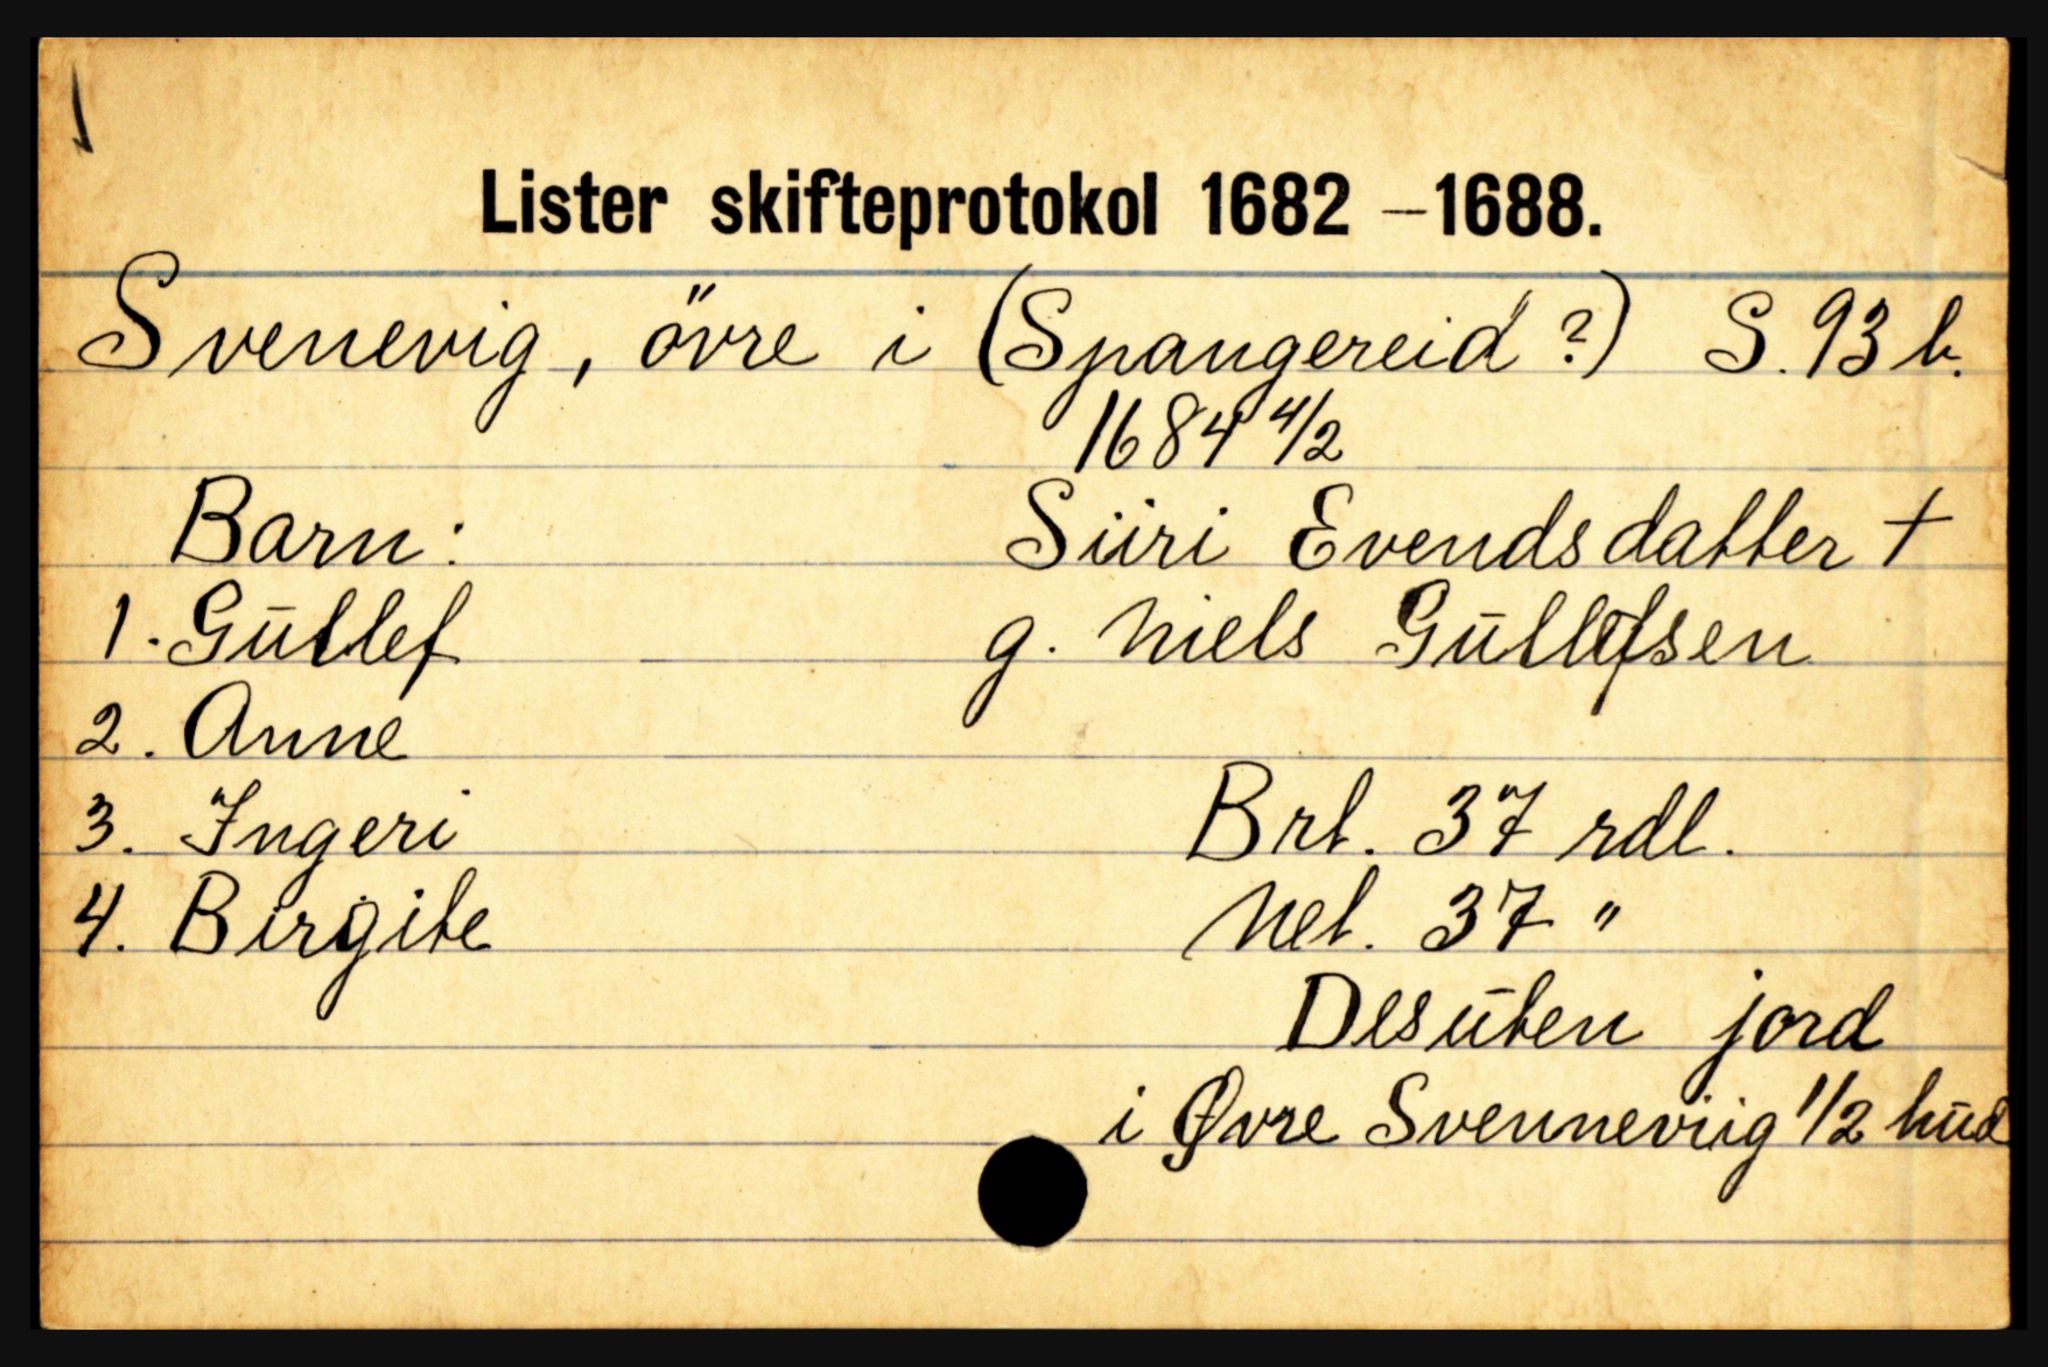 Lister skifteprotokol 1682 – 1688.
Svenevig, övre i (Spangereid?) S. 93 b.
1684 4/2
Barn: Siiri Evendsdatter †
1. Gūllef g. Niels Gūllefsen
2. Anne
3. Ingeri Brt. 37 rdl.
4. Birgite Net. 37 "
Desūten jord
i Øvre Svenneviig 1/2 hūd